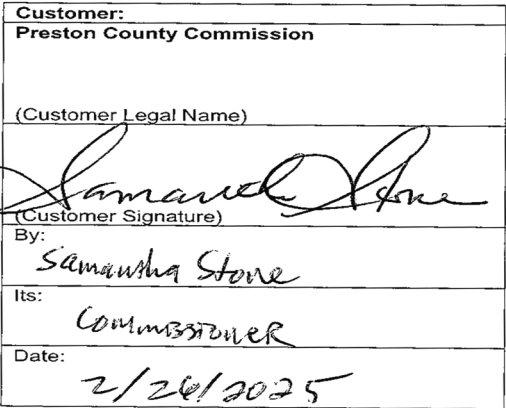 Customer:
Preston County Commission
(Customer Legal Name)
Samantha Stone
(Customer Signature)
By:
Samantha Stone
Its:
CommissioneR
Date:
2/26/2025